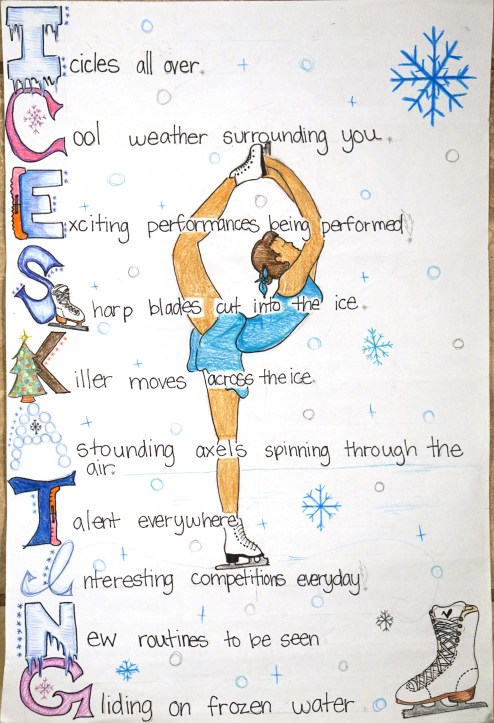 Icicles all over.
Cool weather surrounding you.
Exciting performances being performed
Sharp blades cut into the ice.
Killer moves across the ice.
Astounding axels spinning through the
air.
Talent everywhere
Interesting competitions everyday
New routines to be seen
Gliding on frozen water